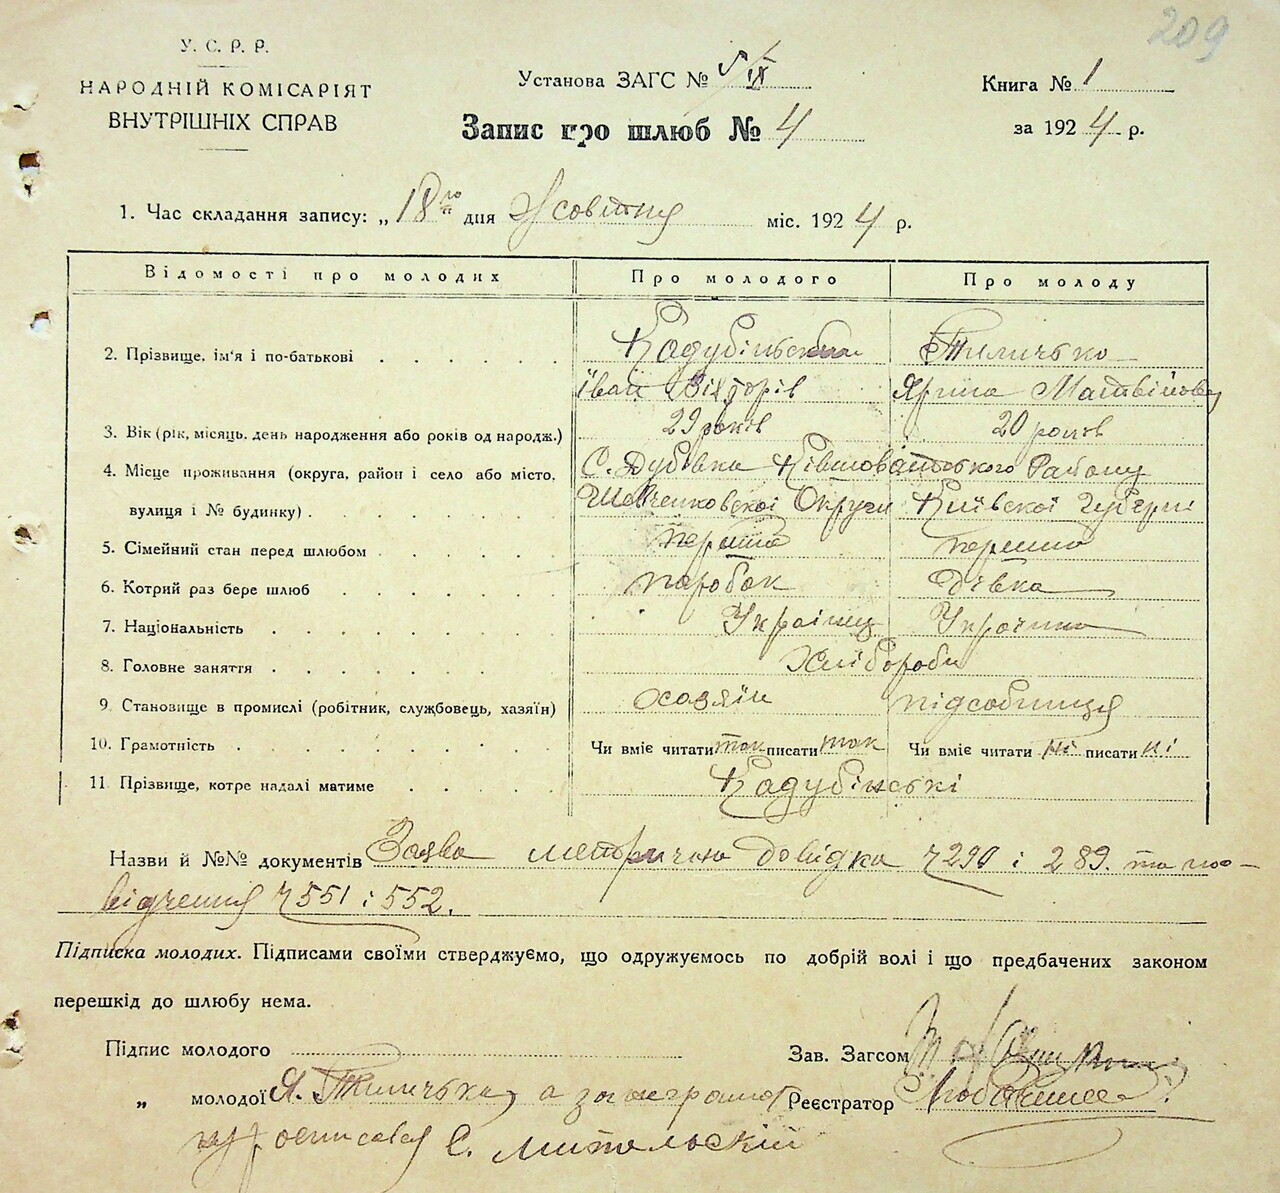 209
У. С. Р. Р.
НАРОДНІЙ КОМІСАРІЯТ
ВНУТРІШНІХ СПРАВ
Установа ЗАГС №
Книга № 1
Запис про шлюб № 4
за 1924 р.
1. Час складання запису: „18го" дня Жовтня міс. 1924 р.
Відомості про молодих Про молодого Про молоду
2. Прізвище, ім'я і по-батькові Кадубінський Тиличько
Іван Вікторів Ярина Матвійовна
3. Вік (рік, місяць, день народження або років од народж.) 29 років 20 років
4. Місце проживання (округа, район і село або місто, С. Дубівка Ківшоватського Району
вулиця і № будинку) Шевченковскої Округи Київскої Губерні
5. Сімейний стан перед шлюбом перший перший
6. Котрий раз бере шлюб паробок Дівка
7. Національність Українц Українка
8. Головне заняття Хлібороби
9. Становище в промислі (робітник, службовець, хазяїн) хозяїн підсобниця
10. Грамотність Чи вміє читати так писати так Чи вміє читати ні писати ні
11. Прізвище, котре надалі матиме Кадубінські
Назви й №№ документів Заява метрична довідка ч 290 і 289. та по-
відчення ч 551 і 552.
Підписка молодих. Підписами своїми стверджуємо, що одружуємось по добрій волі і що предбачених законом
перешкід до шлюбу нема.
Підпис молодого Зав. Загсом
„ молодої Я. Тиличька, а за неграмот Реєстратор
росписався С. Митальскій